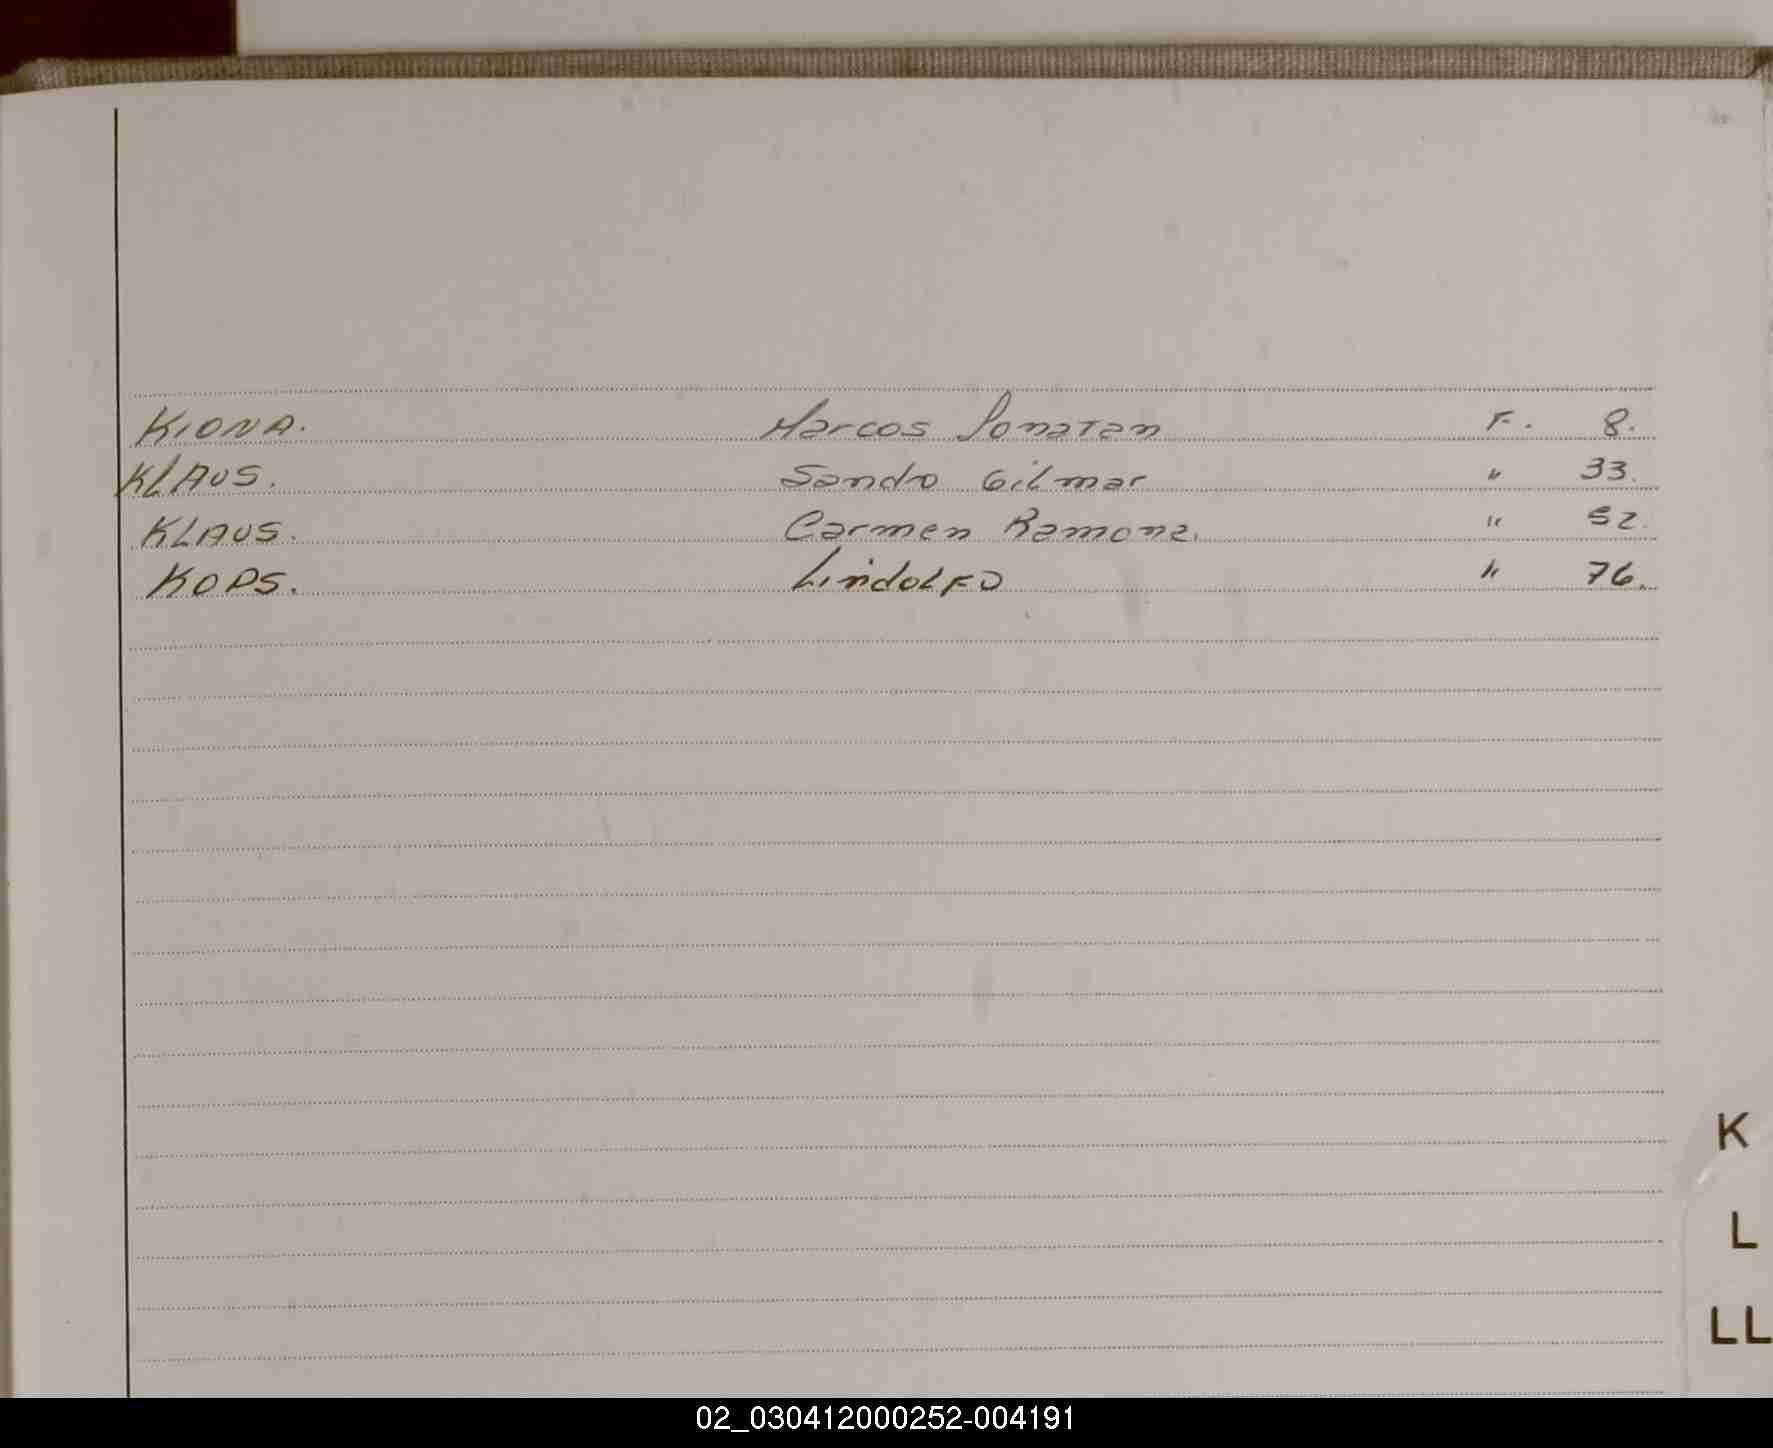 KIONA. Marcos Jonatan F. 8.
KLAUS. Sando Gilmar " 33.
KLAUS. Carmen Ramona. " 52.
KOPS. Lindolfo " 76.
K
L
LL
02_030412000252-004191